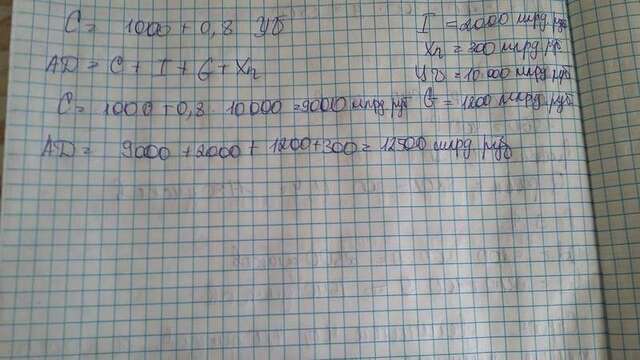 C = 1000 + 0,8 УД
I = 2000 млрд руб
AD = C + I + G + Xn
Xn = 300 млрд р
УД = 10 000 млрд руб
C = 1000 + 0,8 · 10 000 = 9000 млрд руб
G = 1200 млрд руб
AD = 9000 + 2000 + 1200 + 300 = 12500 млрд руб